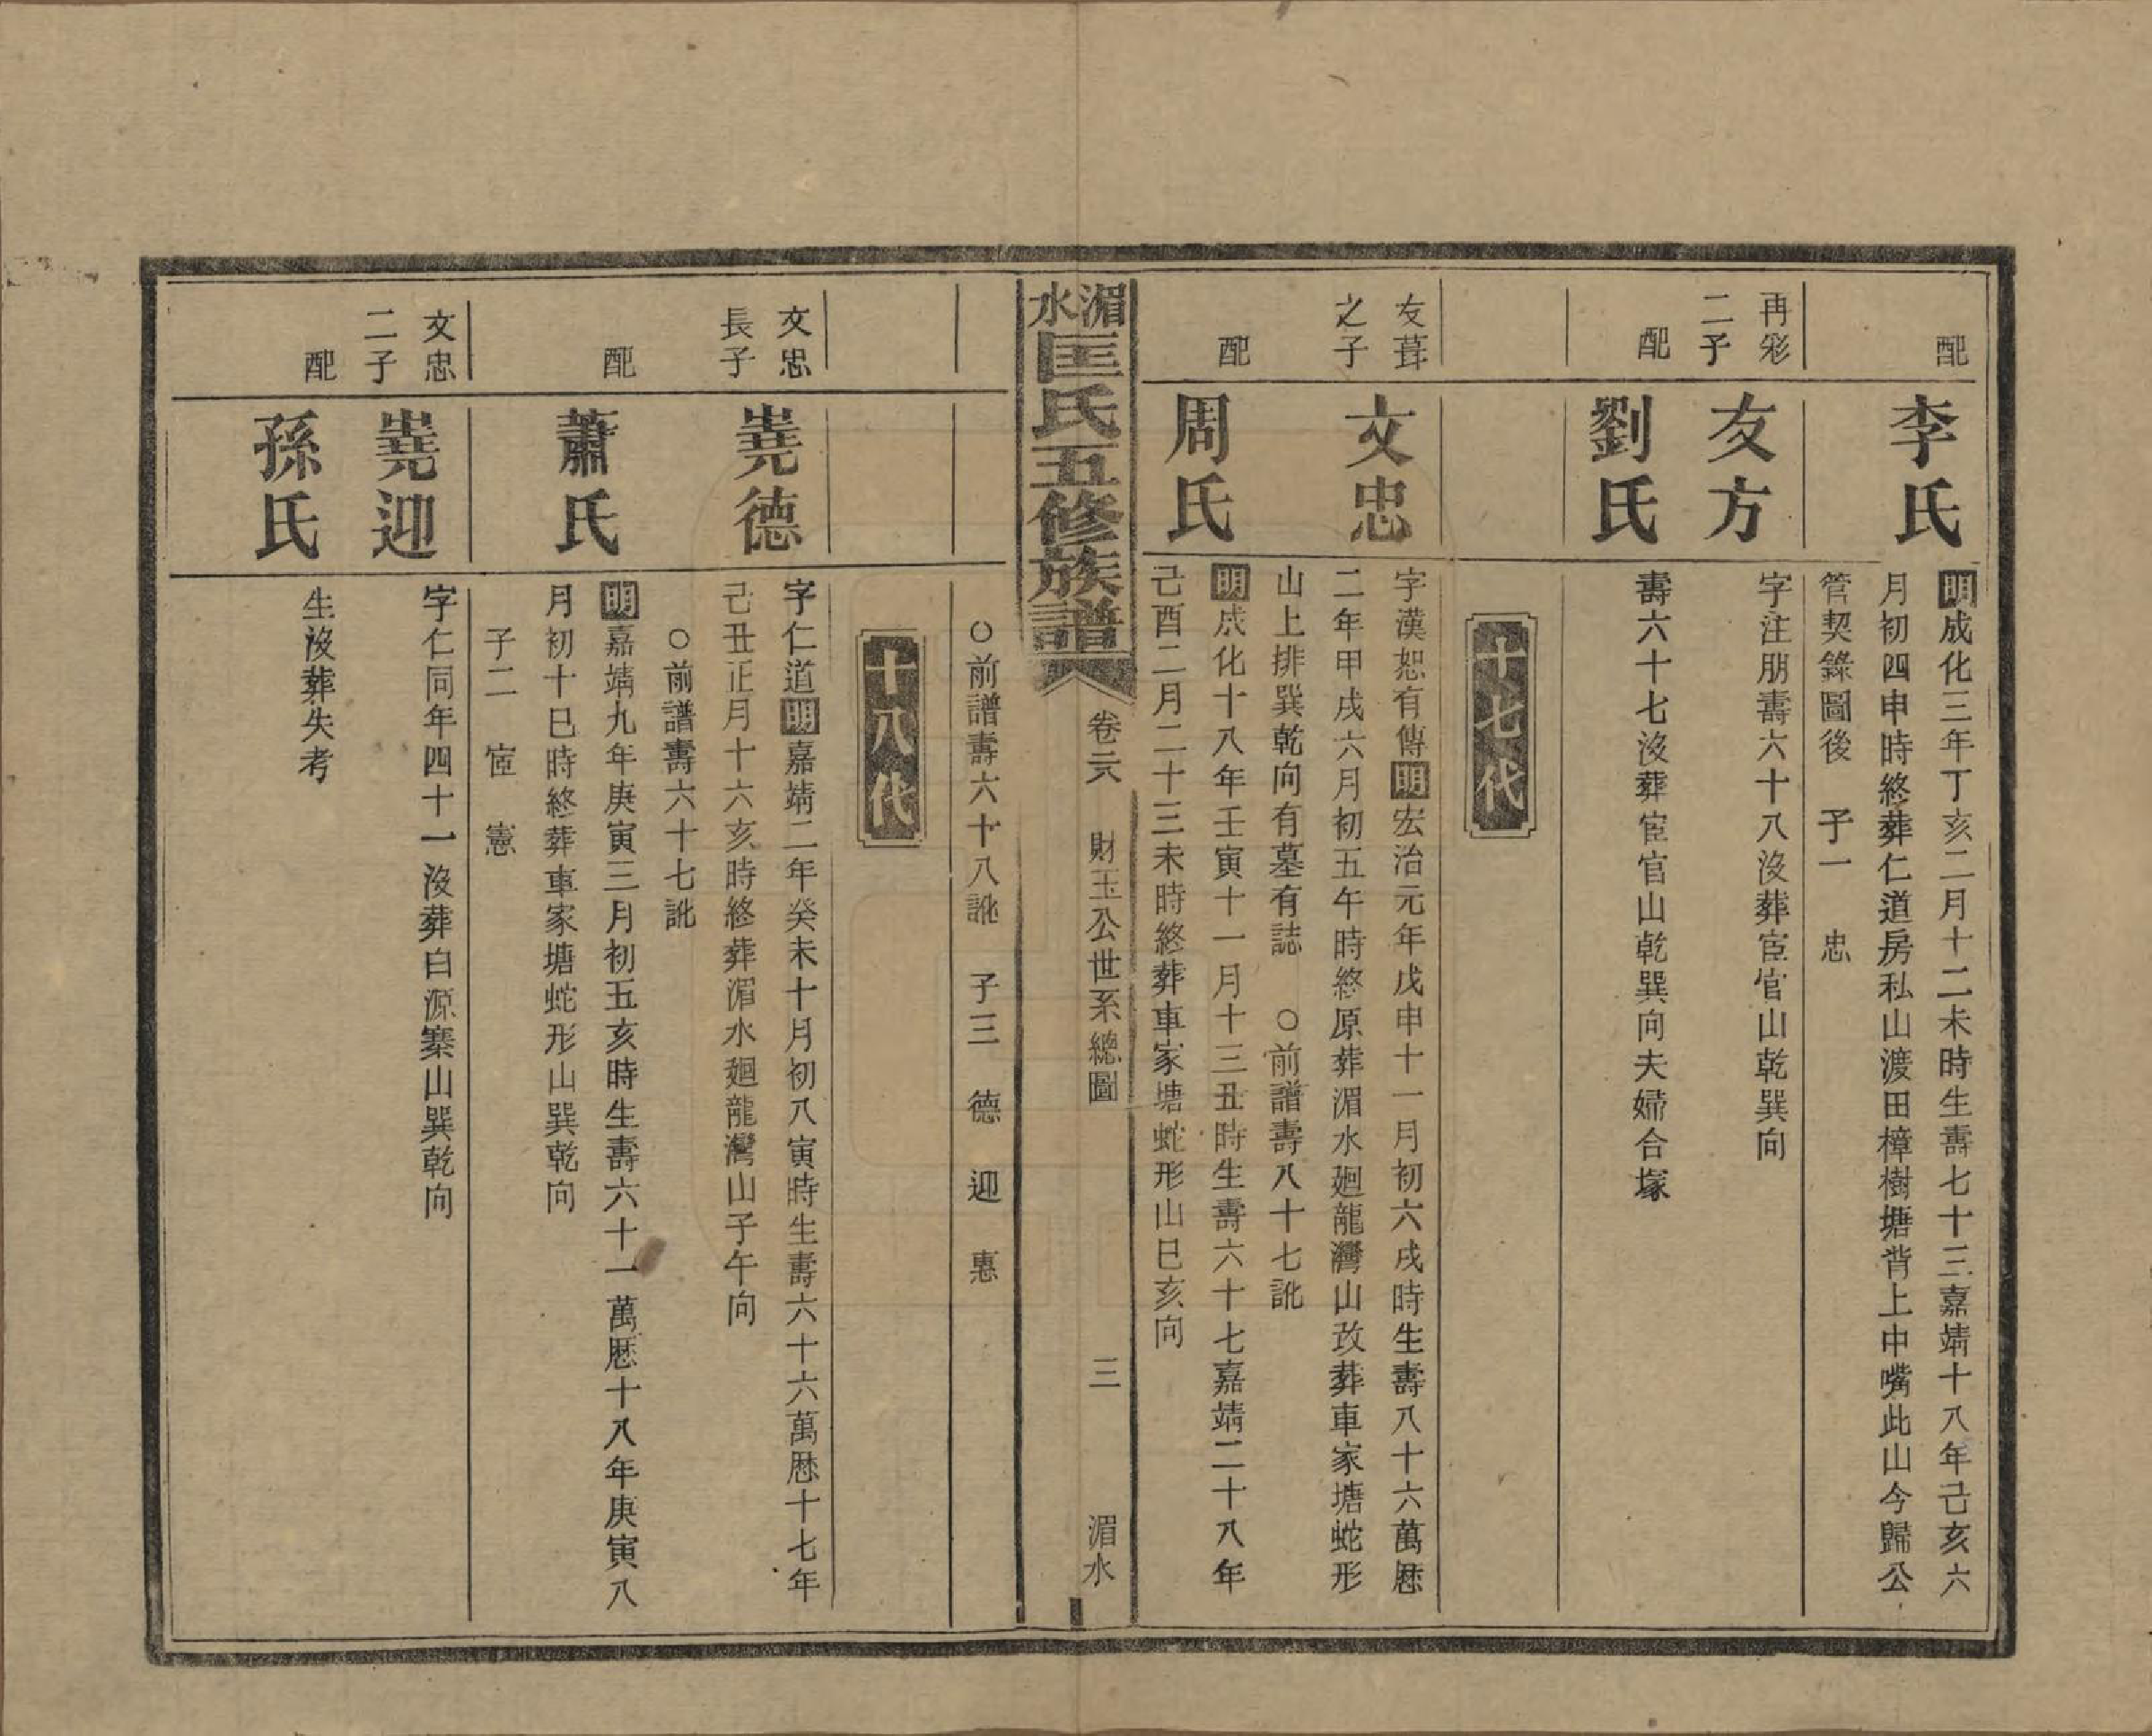 配
李氏
明成化三年丁亥二月十二未時生壽七十三嘉靖十八年己亥六
月初四申時終葬仁道房私山渡田樟樹塘背上中嘴此山今歸公
管契錄圖後　子一　忠
再彩
二子
友方
字注朋壽六十八沒葬宦官山乾巽向
配
劉氏
壽六十七沒葬宦官山乾巽向夫婦合塚
十七代
友葺
之子
文忠
字漢恕有傳明宏治元年戊申十一月初六戌時生壽八十六萬曆
二年甲戌六月初五午時終原葬湄水廻龍灣山改葬車家塘蛇形
山上排巽乾向有墓有誌　○前譜壽八十七訛
配
周氏
明成化十八年壬寅十一月十三丑時生壽六十七嘉靖二十八年
己酉二月二十三未時終葬車家塘蛇形山巳亥向
湄水
匡氏五修族譜
卷二六　財玉公世系總圖　三　湄水
○前譜壽六十八訛　子三　德　迎　惠
十八代
文忠
長子
堯德
字仁道明嘉靖二年癸未十月初八寅時生壽六十六萬曆十七年
己丑正月十六亥時終葬湄水廻龍灣山子午向
○前譜壽六十七訛
配
蕭氏
明嘉靖九年庚寅三月初五亥時生壽六十一萬曆十八年庚寅八
月初十巳時終葬車家塘蛇形山巽乾向
子二　宦　憲
文忠
二子
堯迎
字仁同年四十一沒葬白源寨山巽乾向
配
孫氏
生沒葬失考